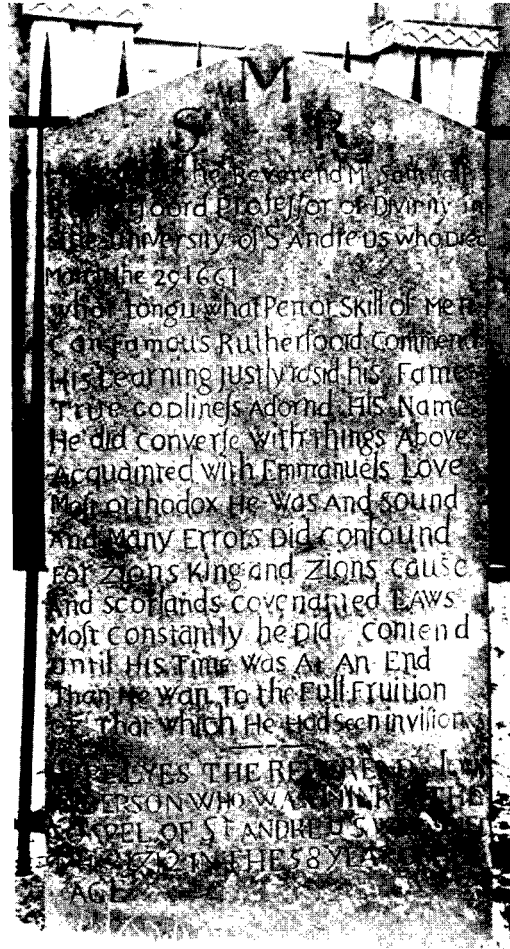 M
S R
the Reverend Mr Samuell
Professor of Divinity in
the University of St Andreus who Died
March the 29 1661
what tongu what Pen or Skill of Men
Can Famous Rutherfoord Commend
His Learning justly rasid his Fame
True GODliness Adornd HIS Name
He did converse with things Above
Acquainted with Emmanuels Love
Most orthodox He Was And sound
And Many Errors Did confound
For Zions King and Zions cause
And scotlands covenanted LAWS
Most constantly he Did contend
Until His Time Was At An End
Than He Wan To the Full Fruition
of That which He Had seen in vision
LYES THE REVEREND
WHO WAS
OF ST ANDREUS
1712 IN THE 58 YEAR
AGE